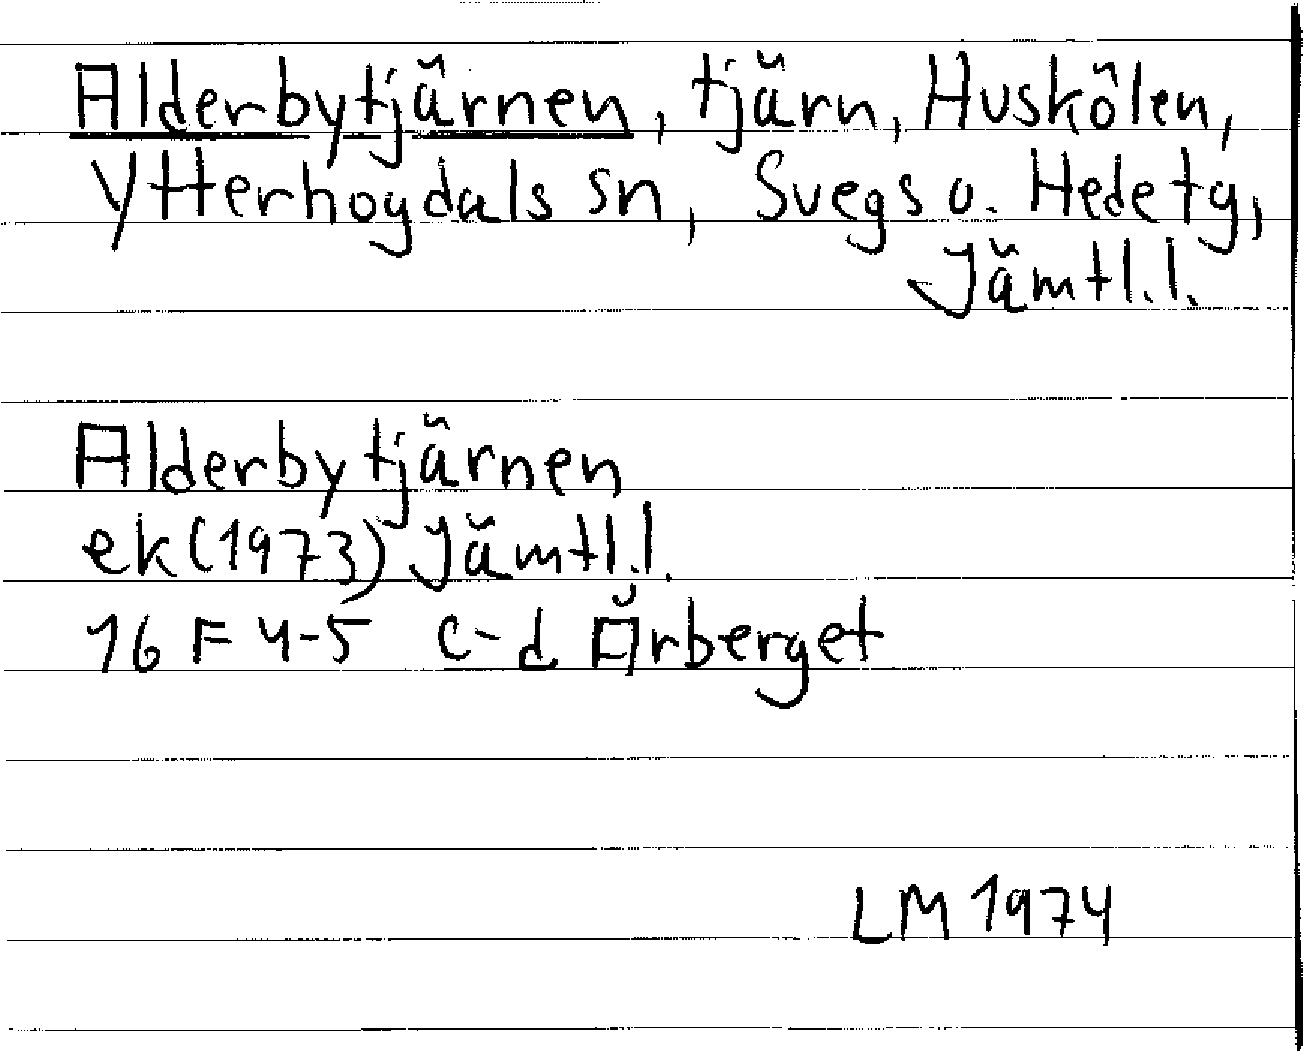 Alderbytjärnen, tjärn, Huskölen,
Ytterhogdals sn, Svegs o. Hede tg,
Jämtl.l.
Alderbytjärnen
ek(1973) Jämtl.l.
16 F 4-5 c-d Ärberget
LM 1974